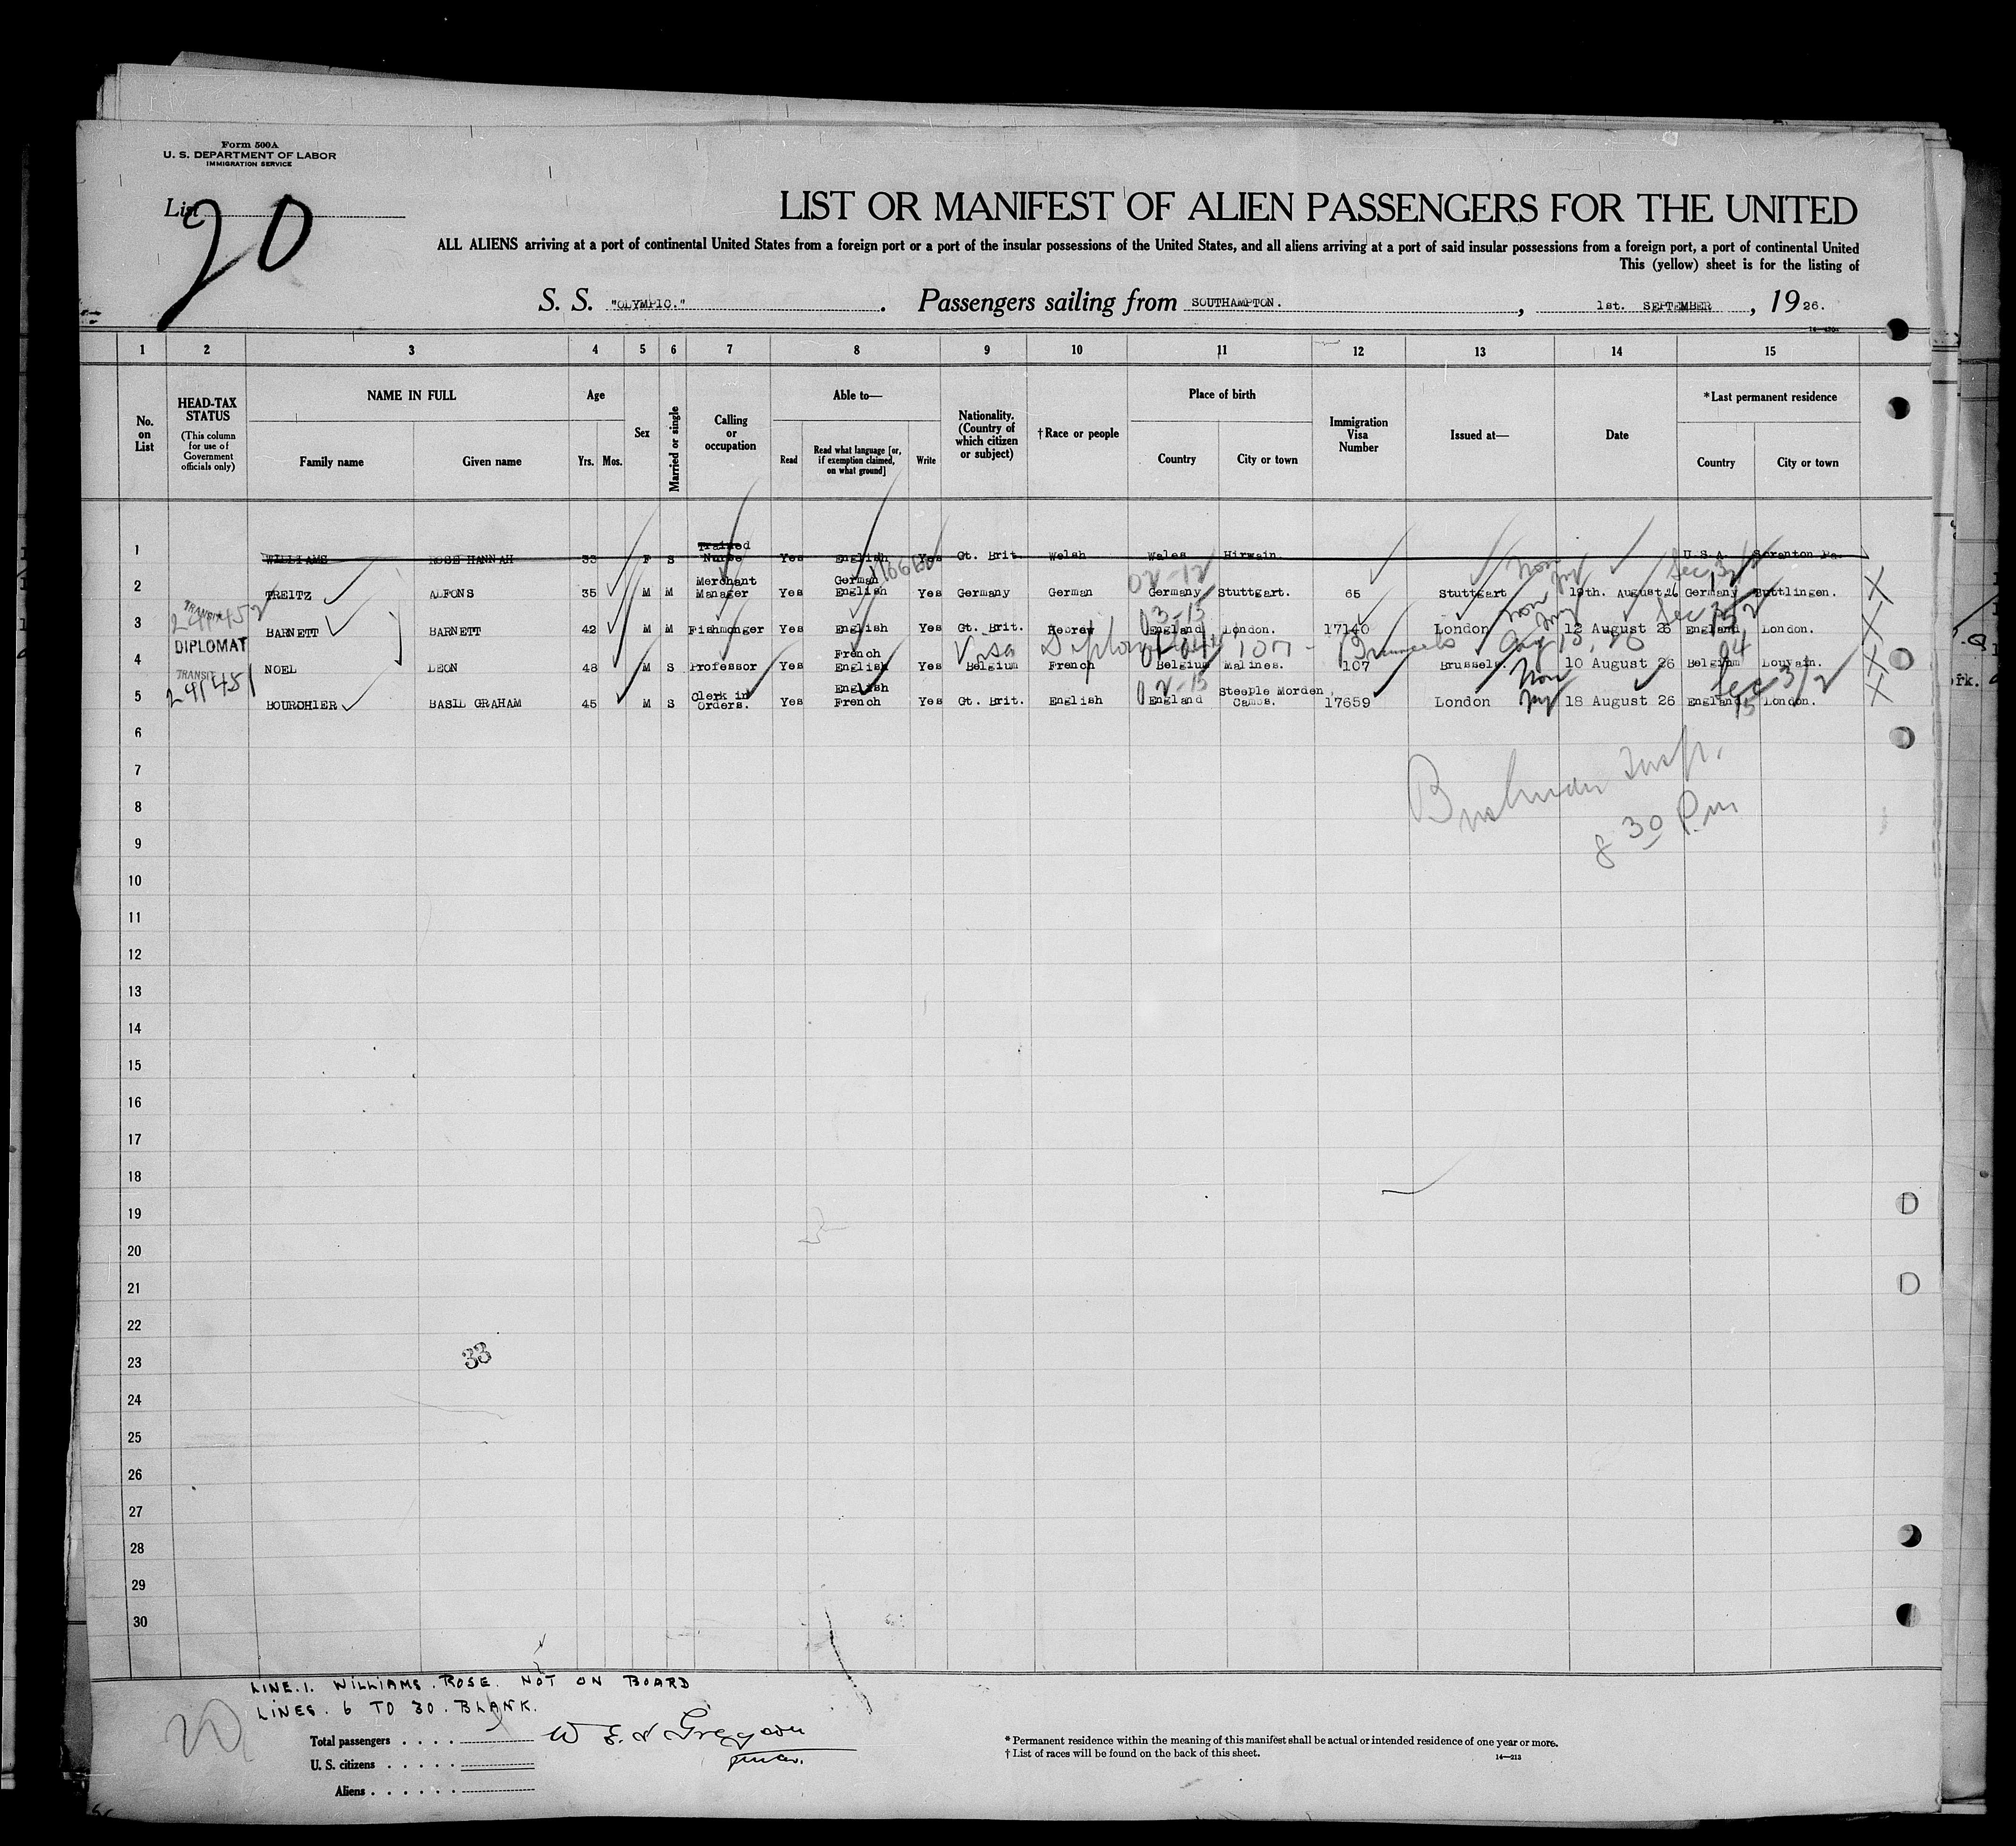 Form 500A
U. S. DEPARTMENT OF LABOR
IMMIGRATION SERVICE
List 20
LIST OR MANIFEST OF ALIEN PASSENGERS FOR THE UNITED
ALL ALIENS arriving at a port of continental United States from a foreign port or a port of the insular possessions of the United States, and all aliens arriving at a port of said insular possessions from a foreign port, a port of continental United
This (yellow) sheet is for the listing of
S. S. "OLYMPIC." . Passengers sailing from SOUTHAMPTON. , 1st. SEPTEMBER , 19 26.
1 2 3 4 5 6 7 8 9 10 11 12 13 14 15
No. on List
HEAD-TAX STATUS
(This column for use of Government officials only)
NAME IN FULL
Family name Given name
Age
Yrs. Mos.
Sex
Married or single
Calling or occupation
Able to—
Read
Read what language [or, if exemption claimed, on what ground]
Write
Nationality. (Country of which citizen or subject)
†Race or people
Place of birth
Country City or town
Immigration Visa Number
Issued at—
Date
*Last permanent residence
Country City or town
1 WILLIAMS ROSE HANNAH 33 F S Trained Nurse Yes English Yes Gt. Brit. Welsh Wales Hirwain. U.S.A. Scranton Pa.
02-12 Non Sec 3/2
2 TREITZ ALFONS 35 M M Merchant Manager Yes German English Yes Germany German Germany Stuttgart. 65 Stuttgart 19th. August 26 Germany Buttlingen. X
TRANSIT
03-15 Non Sec 3/2
3 BARNETT BARNETT 42 M M Fishmonger Yes English Yes Gt. Brit. Hebrew England London. 17140 London 12 August 26 England London. X
DIPLOMAT
Visa Brussels
4 NOEL LEON 48 M S Professor Yes French English Yes Belgium French Belgium Malines. 107 Brussels. 10 August 26 Belgium Louvain. X
TRANSIT
02-15 Non Sec 3/2
5 BOURDHIER BASIL GRAHAM 45 M S Clerk in Orders. Yes English French Yes Gt. Brit. English England Steeple Morden Cambs. 17659 London 18 August 26 England London. X
6
7
8
8 30 P.m
9
10
11
12
13
14
15
16
17
18
19
20
21
22
23
33
24
25
26
27
28
29
30
LINE.1. WILLIAMS. ROSE. NOT ON BOARD
LINES. 6 TO 30. BLANK.
Total passengers . . . .
U. S. citizens . . . . .
Aliens . . . . . .
* Permanent residence within the meaning of this manifest shall be actual or intended residence of one year or more.
† List of races will be found on the back of this sheet.
14—213